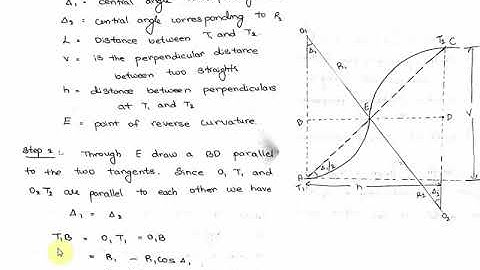 Δ₁ = central angle
Δ₂ = central angle corresponding to R₂
L = Distance between T₁ and T₂
v = is the perpendicular distance
between two straights
h = distance between perpendiculars
at T₁ and T₂
E = point of reverse curvature
Step 2: Through E draw a BD parallel
to the two tangents. Since O₁ T₁ and
O₂ T₂ are parallel to each other we have
Δ₁ = Δ₂
T₁B = O₁ T₁ = O₁B
= R₁ - R₁cos Δ₁
O₁
Δ₁
R₁
T₂ C
E
B
D
V
A
T₁
Δ₁/2
h
R₂
Δ₂
O₂